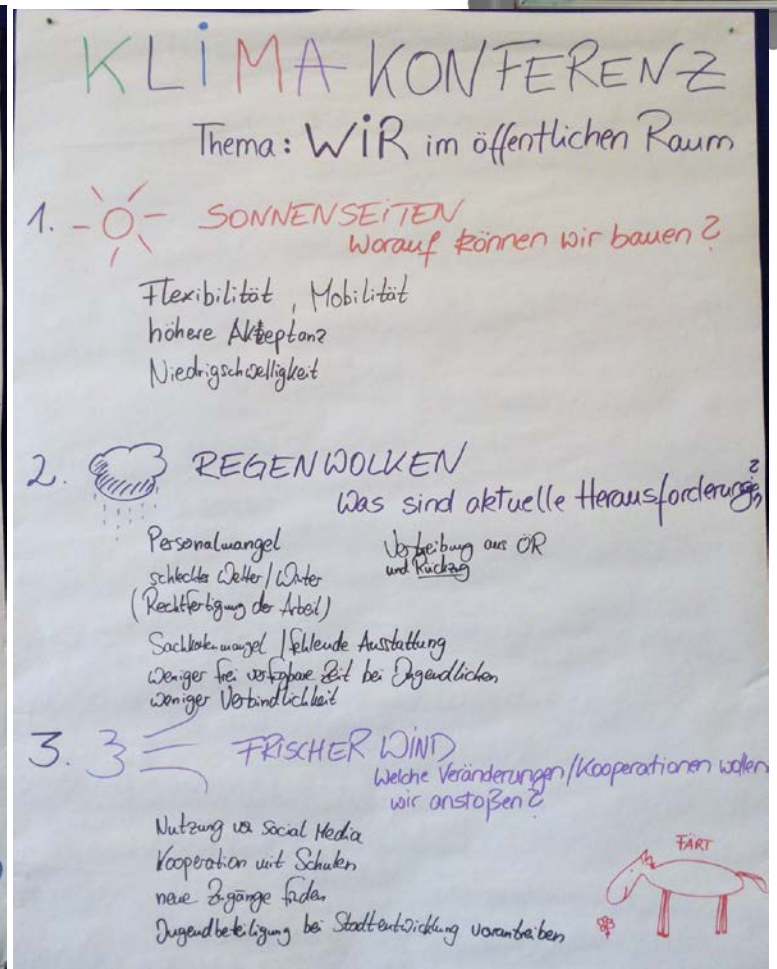 KLIMA KONFERENZ
Thema: WIR im öffentlichen Raum
1. SONNENSEITEN
Worauf können wir bauen?
Flexibilität, Mobilität
höhere Akzeptanz
Niedrigschwelligkeit
2. REGENWOLKEN
Was sind aktuelle Herausforderungen?
Personalmangel
schlechtes Wetter/Winter
(Rechtfertigung der Arbeit)
Sachkostenmangel / fehlende Ausstattung
weniger frei verfügbare Zeit bei Jugendlichen
weniger Verbindlichkeit
Vertreibung aus ÖR
und Rückzug
3. FRISCHER WIND
Welche Veränderungen/Kooperationen wollen
wir anstoßen?
Nutzung von Social Media
Kooperation mit Schulen
neue Zugänge finden
Jugendbeteiligung bei Stadtentwicklung vorantreiben
FÄRT